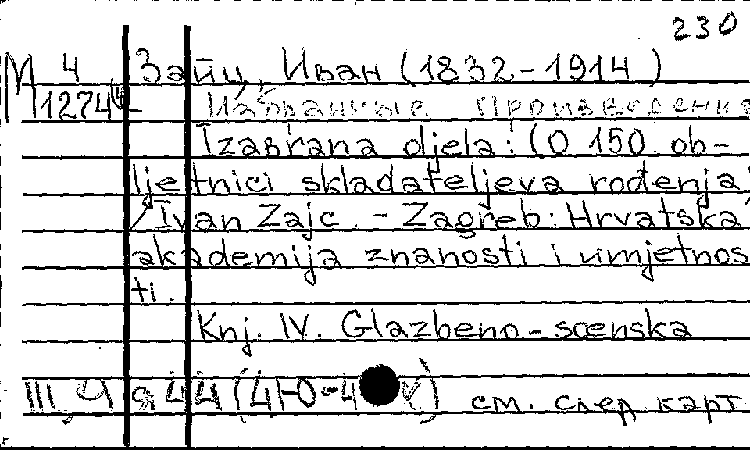 230
М 4 Зайц, Иван (1832-1914)
11274 Избранные произведения
Izabrana djela: (O 150 ob-
ljetnici skladateljeva rođenja)
/Ivan Zajc. - Zagreb: Hrvatska
akademija znanosti i umjetnos-
ti.
Knj. IV. Glazbeno-scenska
см. след карт